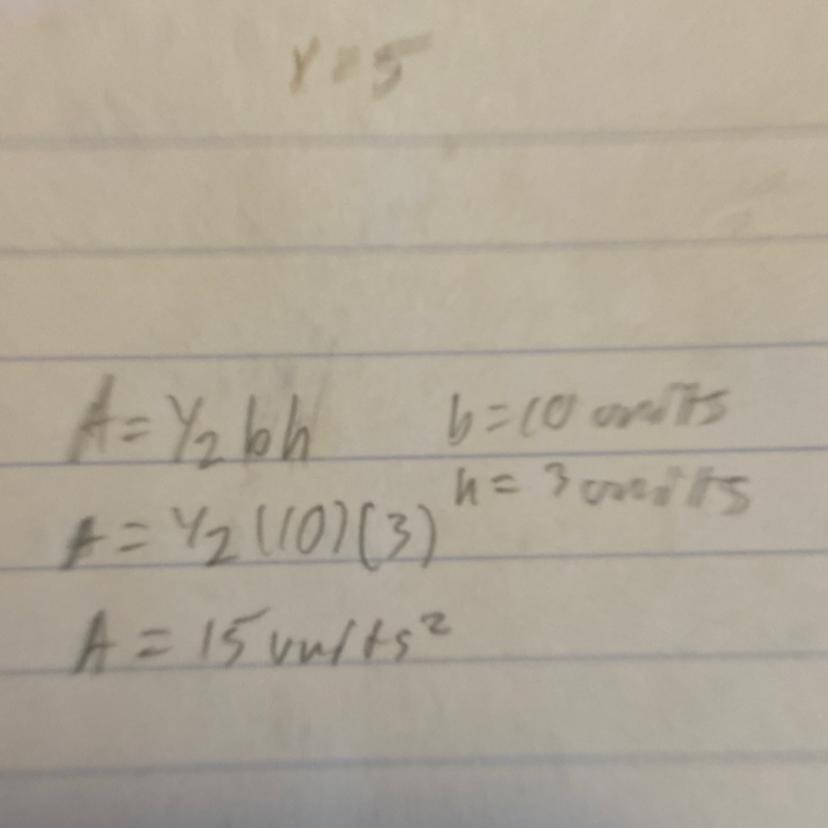 r=5
A=1/2bh
b=10 units
h=3 units
A=1/2(10)(3)
A=15 units²